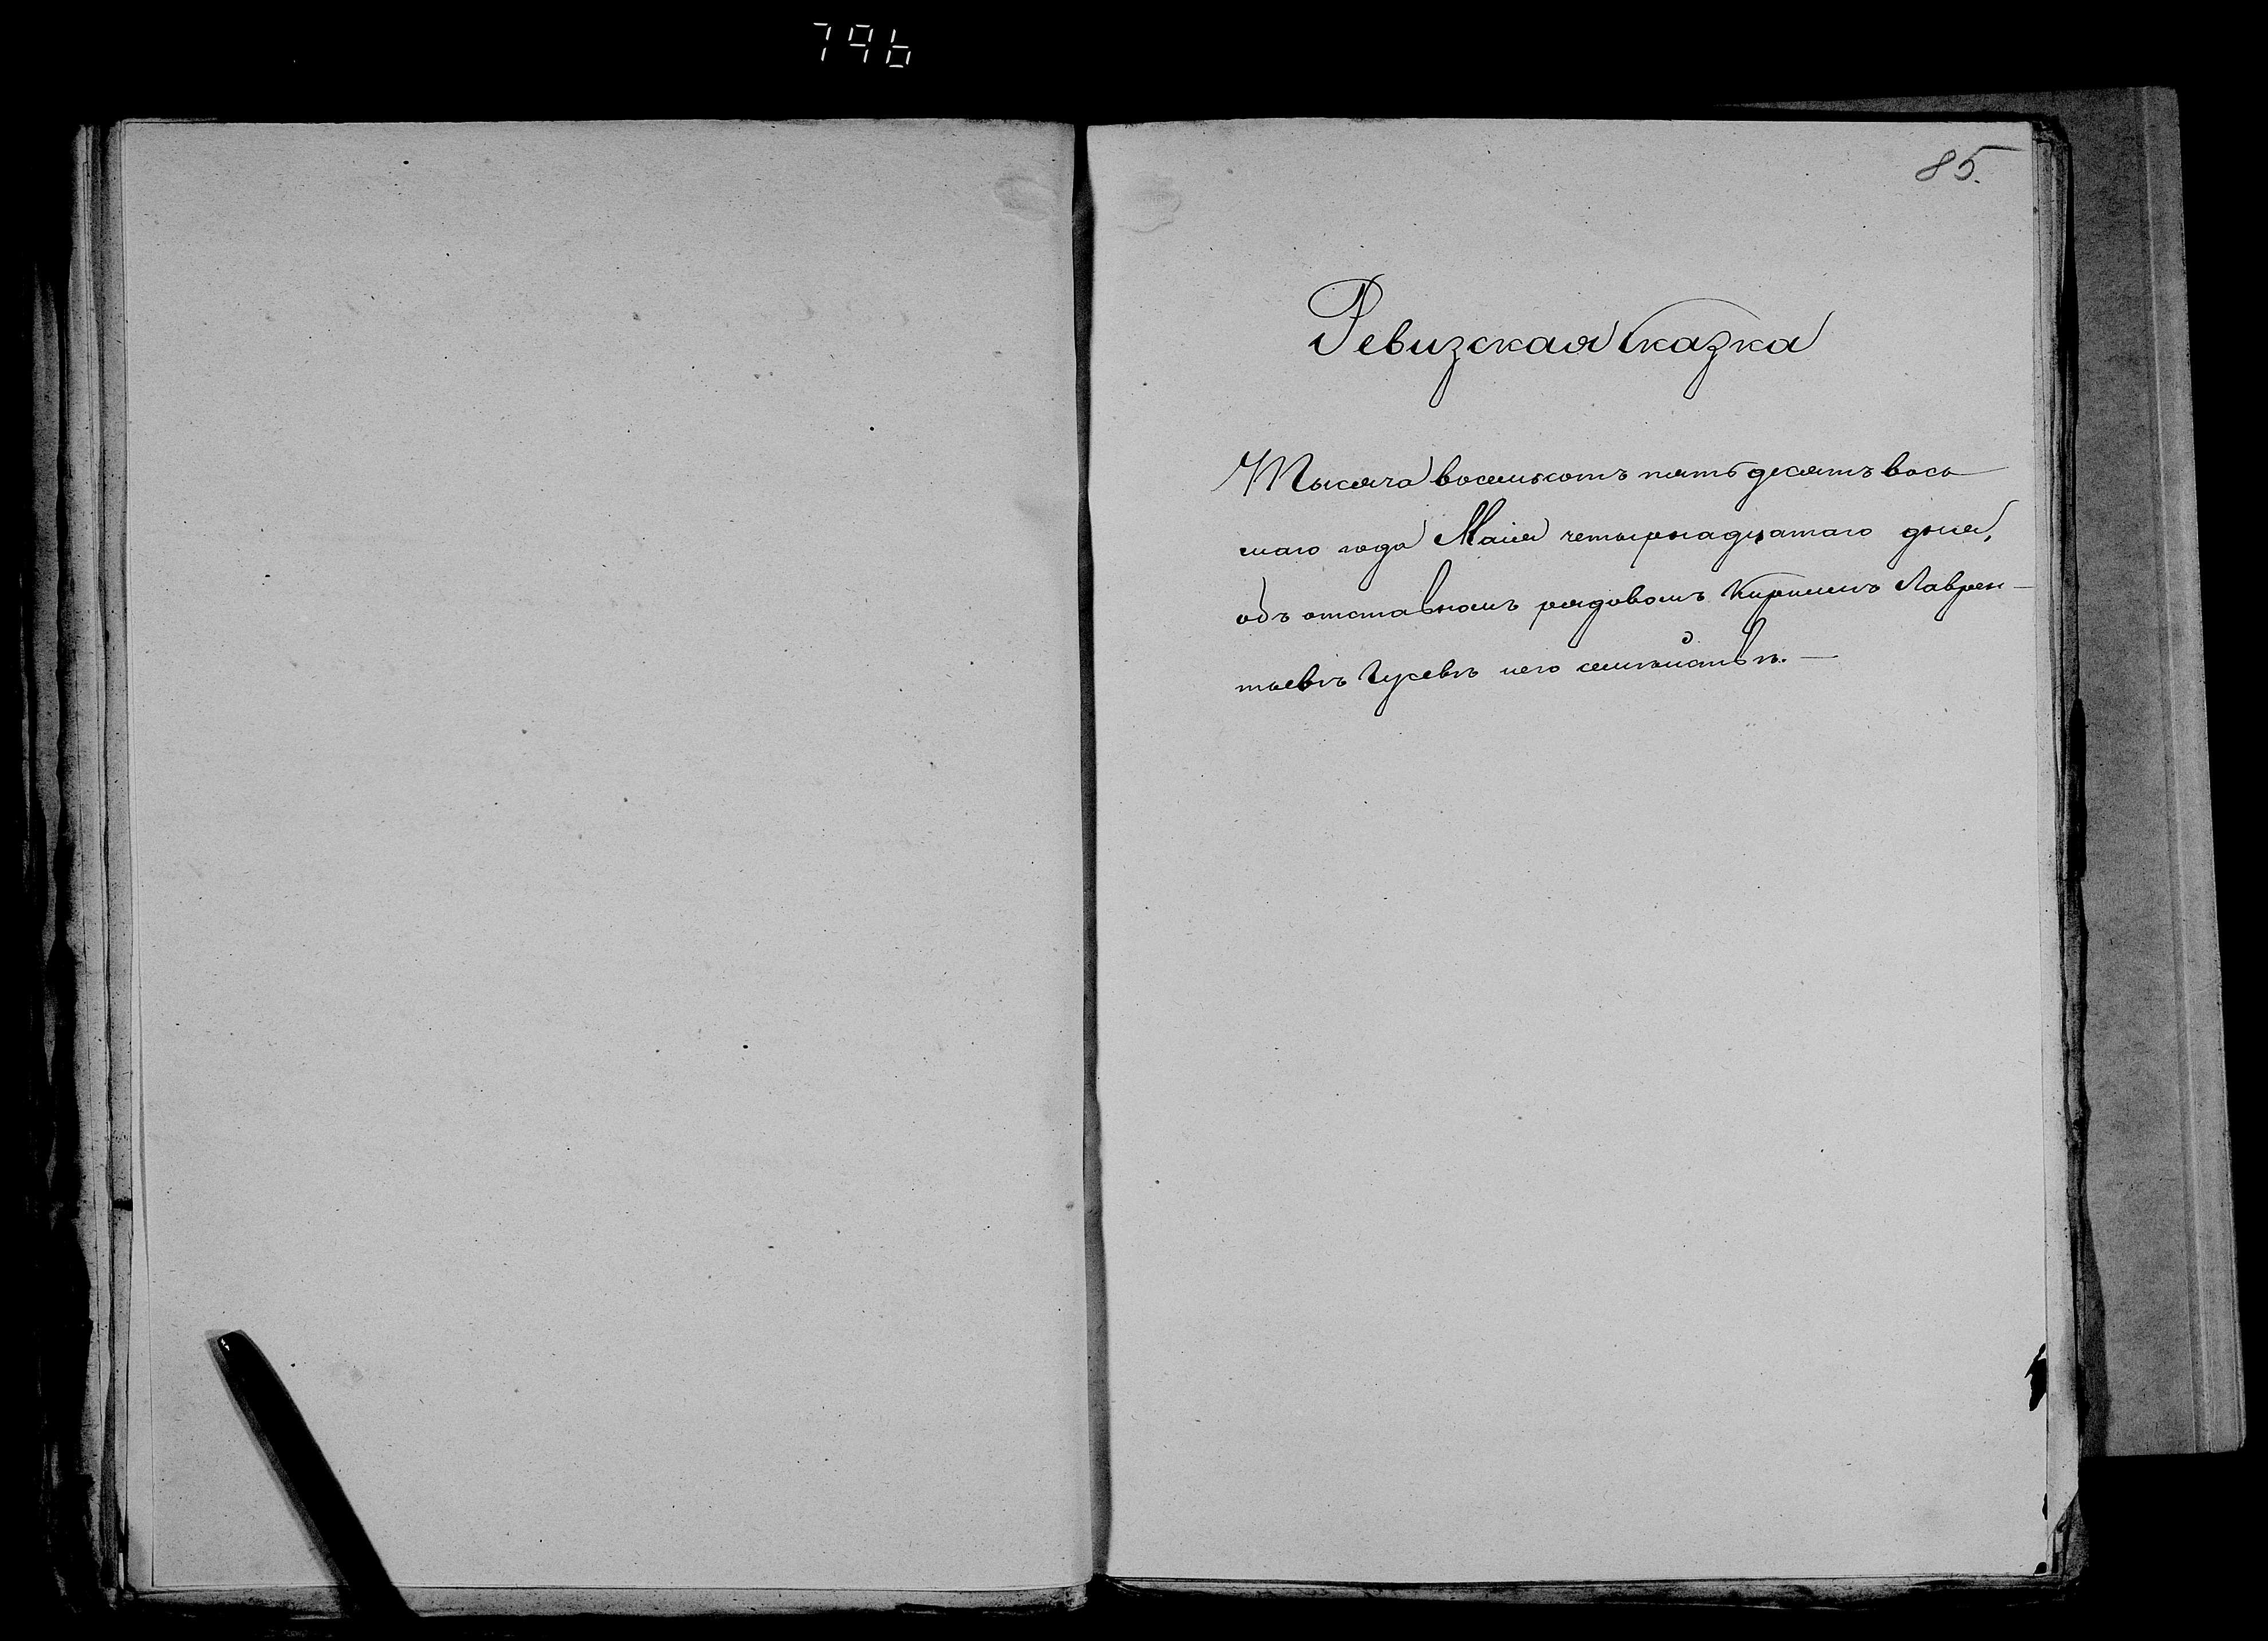 796
85.
Ревизская сказка
Тысяча восемьсотъ пятьдесятъ вось
маго года Маія четырнадцатаго дня,
объ отставномъ рядовомъ Кирилѣ Лаврен-
тьевѣ Гусевѣ и его семѣйствѣ. —